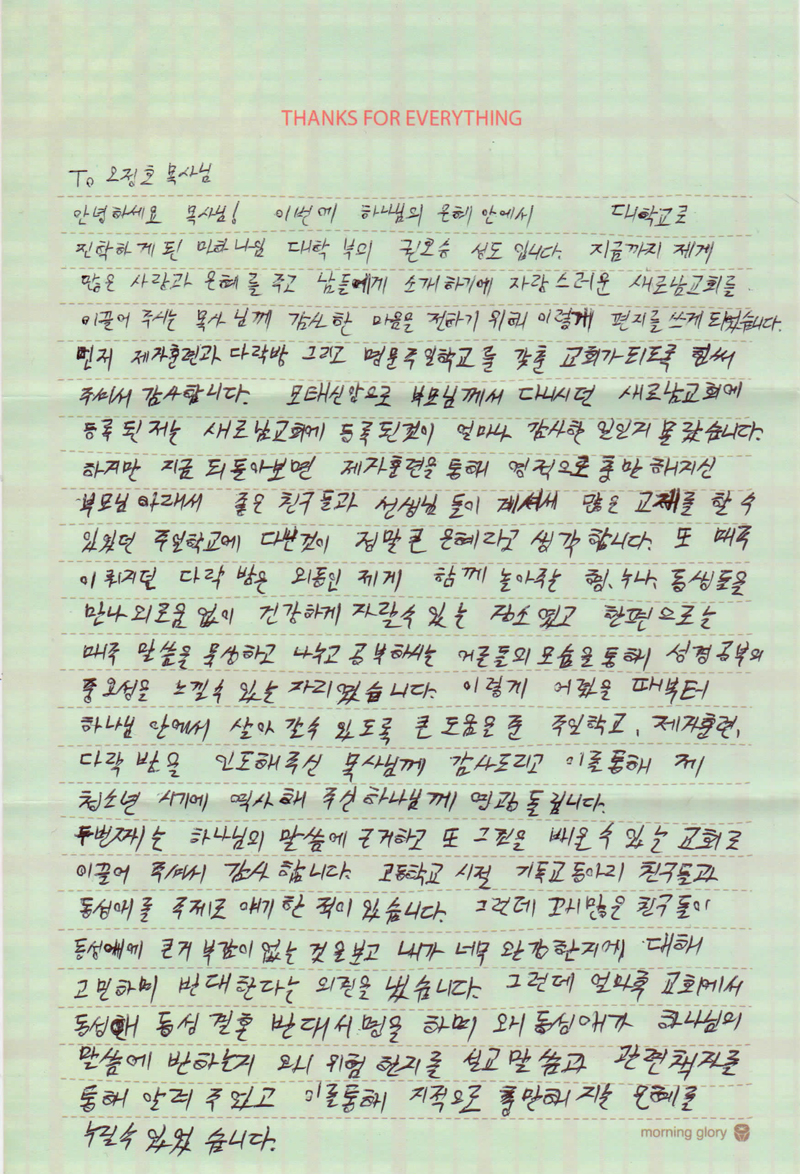 THANKS FOR EVERYTHING
To 오정호 목사님
안녕하세요 목사님! 이번에 하나님의 은혜 안에서 대학교로
진학하게 된 마하나임 대학부의 권오승 성도 입니다. 지금까지 제게
많은 사랑과 은혜를 주고 남들에게 소개하기에 자랑스러운 새로남교회를
이끌어 주시는 목사님께 감사한 마음을 전하기 위해 이렇게 편지를 쓰게 되었습니다.
먼저 제자훈련과 다락방 그리고 명문주일학교를 갖춘 교회가 되도록 힘써
주셔서 감사합니다. 모태신앙으로 부모님께서 다니시던 새로남교회에
등록된 저는 새로남교회에 등록된것이 얼마나 감사한 일인지 몰랐습니다.
하지만 지금 되돌아보면 제자훈련을 통해 영적으로 충만해지신
부모님 아래서 좋은 친구들과 선생님들이 계셔서 많은 교제를 할 수
있었던 주일학교에 다닌것이 정말 큰 은혜라고 생각합니다. 또 매주
이뤄지던 다락방은 외동인 제게 함께 놀아주는 형, 누나, 동생들을
만나 외로움 없이 건강하게 자랄수 있는 장소였고 한편으로는
매주 말씀을 묵상하고 나누고 공부하시는 어른들의 모습을 통해 성경공부의
중요성을 느낄수 있는 자리였습니다. 이렇게 어렸을 때부터
하나님 안에서 살아갈수 있도록 큰 도움을 준 주일학교, 제자훈련,
다락방을 인도해주신 목사님께 감사드리고 이를통해 제
청소년 시기에 역사해 주신 하나님께 영광돌립니다.
두번째는 하나님의 말씀에 근거하고 또 그것을 배울 수 있는 교회로
이끌어 주셔서 감사합니다. 고등학교 시절 기독교동아리 친구들과
동성애를 주제로 얘기한 적이 있습니다. 그런데 꽤 많은 친구들이
동성애에 큰 거부감이 없는 것을 보고 내가 너무 완강한지에 대해
고민하며 반대한다는 의견을 냈습니다. 그런데 얼마후 교회에서
동성애 동성결혼 반대서명을 하며 왜 동성애가 하나님의
말씀에 반하는지 왜 위험한지를 설교말씀과 관련책자를
통해 알려주었고 이를통해 지적으로 충만해지는 은혜를
누릴수 있었습니다.
morning glory